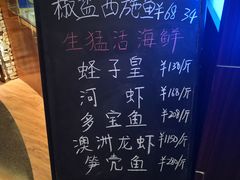 椒盐西施鲜¥68 34
生猛活海鲜
蛏子皇¥138/斤
河虾¥168/斤
多宝鱼¥208/斤
澳洲龙虾¥1150/斤
笋壳鱼¥280/斤